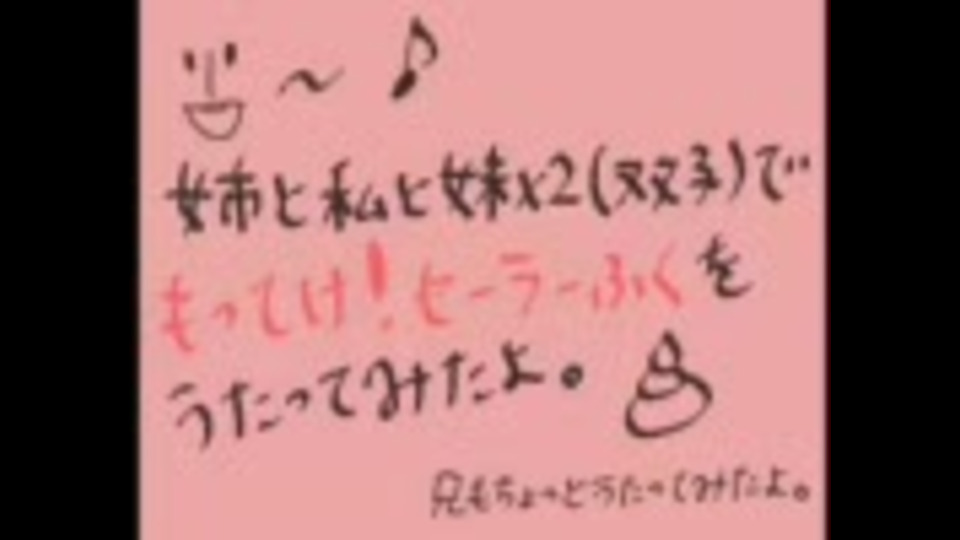 ~♪
姉と私と妹x2(双子)で
もってけ!セーラーふくを
うたってみたよ。
兄もちょっとうたってみたよ。